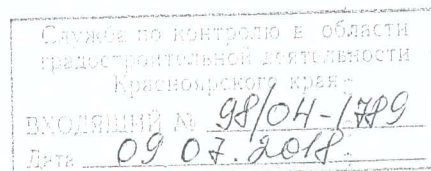 Служба по контролю в области
градостроительной деятельности
Красноярского края
ВХОДЯЩИЙ № 98/04-1789
Дата 09 07.2018